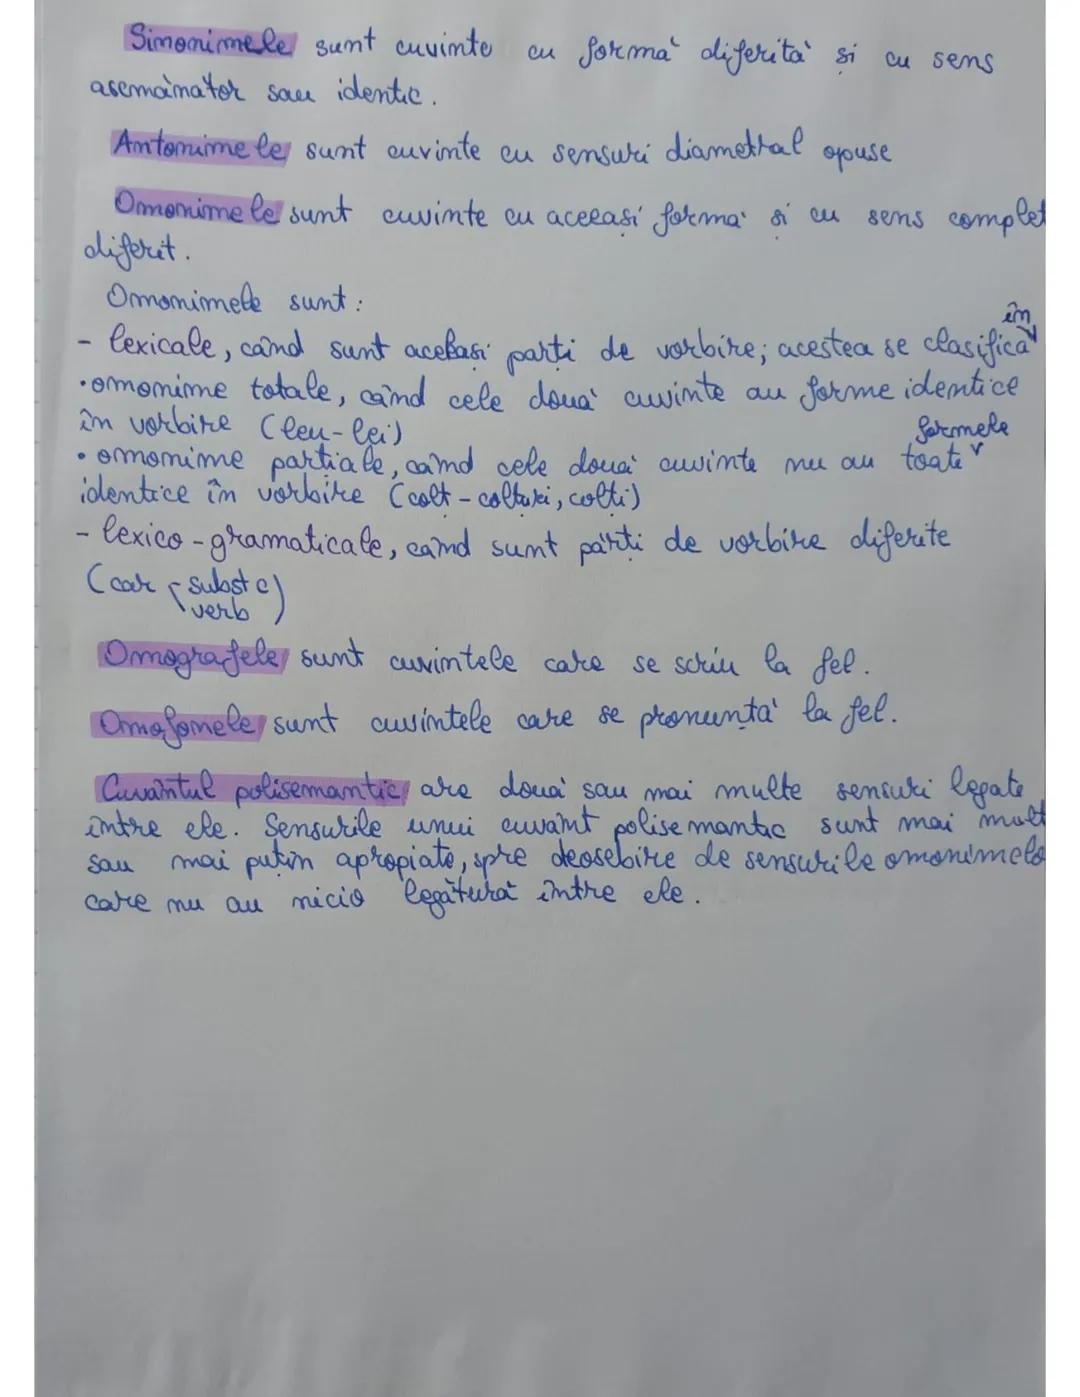 Sinonimele sunt cuvinte cu formă diferită și cu sens
asemănător sau identic.
Antonimele sunt cuvinte cu sensuri diametral opuse
Omonimele sunt cuvinte cu aceeași formă și cu sens complet
diferit.
Omonimele sunt:
- lexicale, când sunt aceleași părți de vorbire; acestea se clasifică în
• omonime totale, când cele două cuvinte au forme identice
în vorbire (leu-lei)
• omonime parțiale, când cele două cuvinte nu au toate formele
identice în vorbire (colt - colțuri, colți)
- lexico-gramaticale, când sunt părți de vorbire diferite
(car { subst c
verb )
Omografele sunt cuvintele care se scriu la fel.
Omofonele sunt cuvintele care se pronunță la fel.
Cuvântul polisemantic are două sau mai multe sensuri legate
între ele. Sensurile unui cuvânt polisemantic sunt mai mult
sau mai puțin apropiate, spre deosebire de sensurile omonimelo
care nu au nicio legătură între ele.